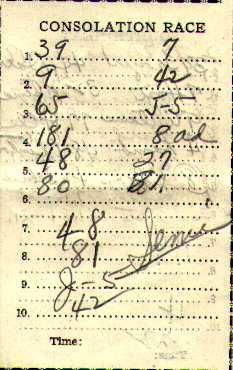 CONSOLATION RACE
1. 39 7
2. 9 42
3. 65 5-5
4. 181 8 al
5. 48 27
6. 80 81
7. 48
8. 81
9. J-5
10. 42
Time: